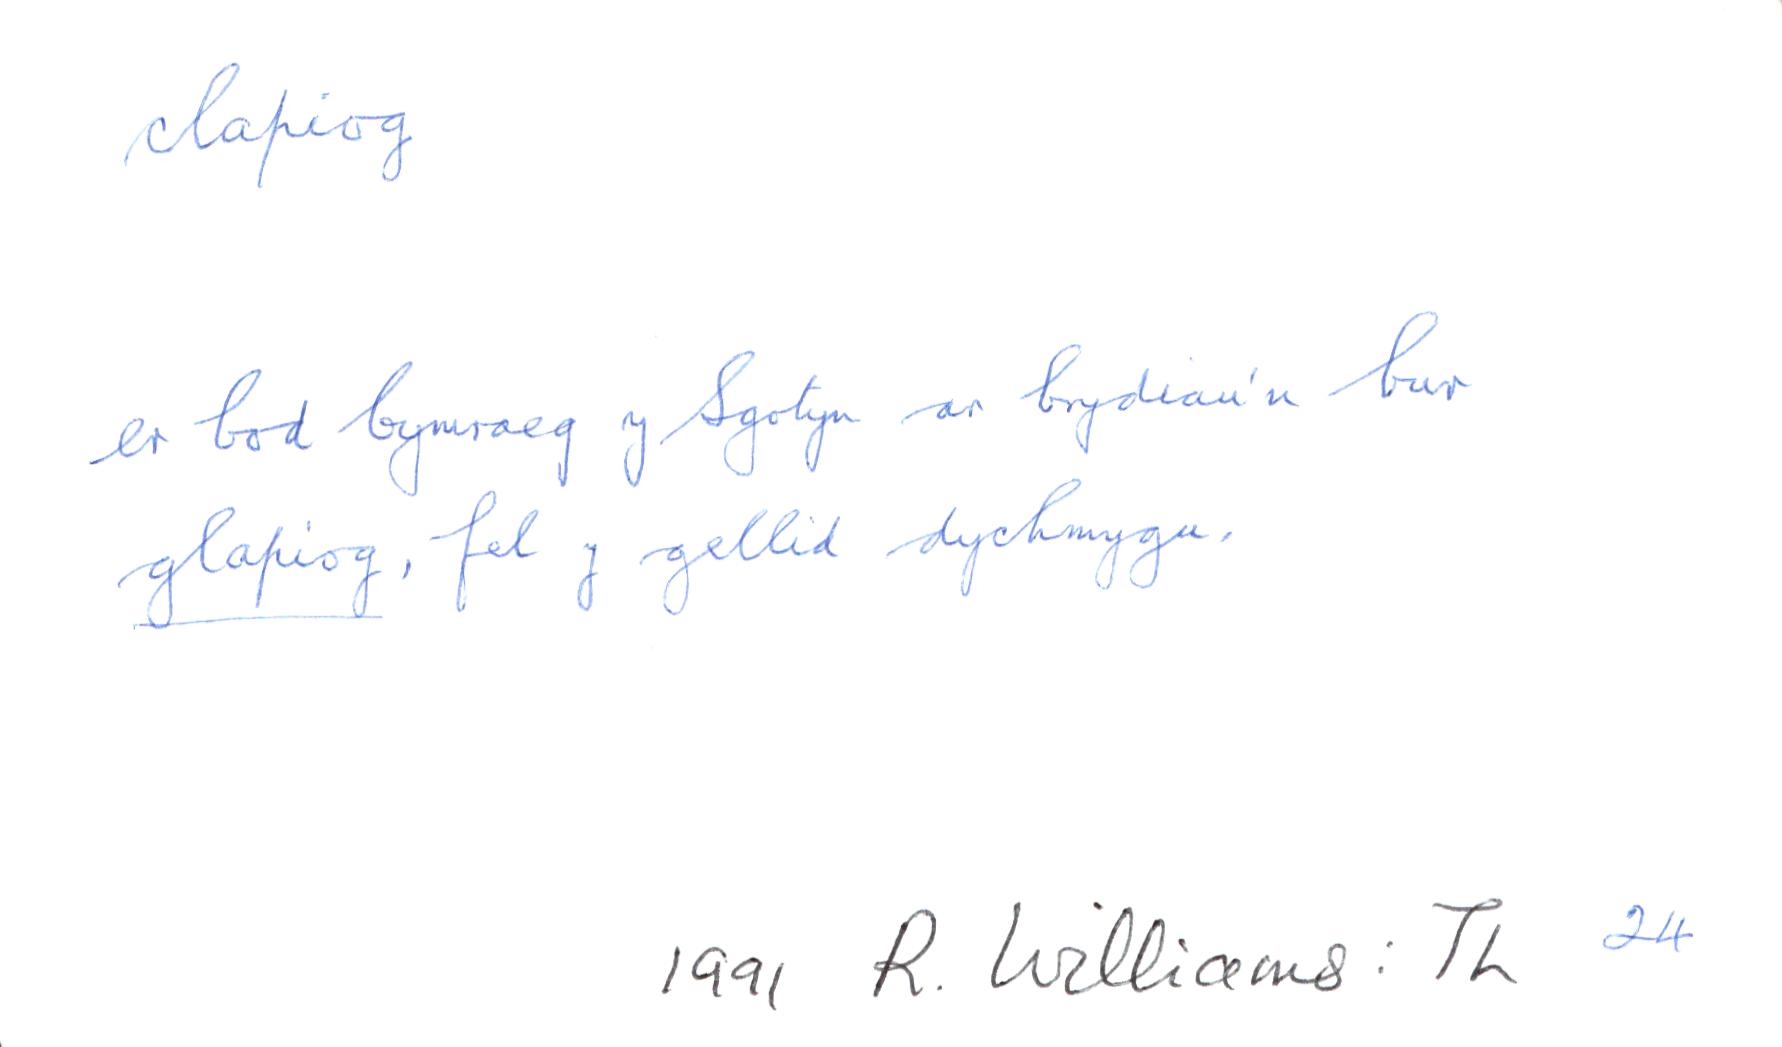 clapiog
er bod Cymraeg y Sgotyn ar brydiau'n bur
glapiog, fel y gellid dychmygu.
1991 R. Williams: Th 24